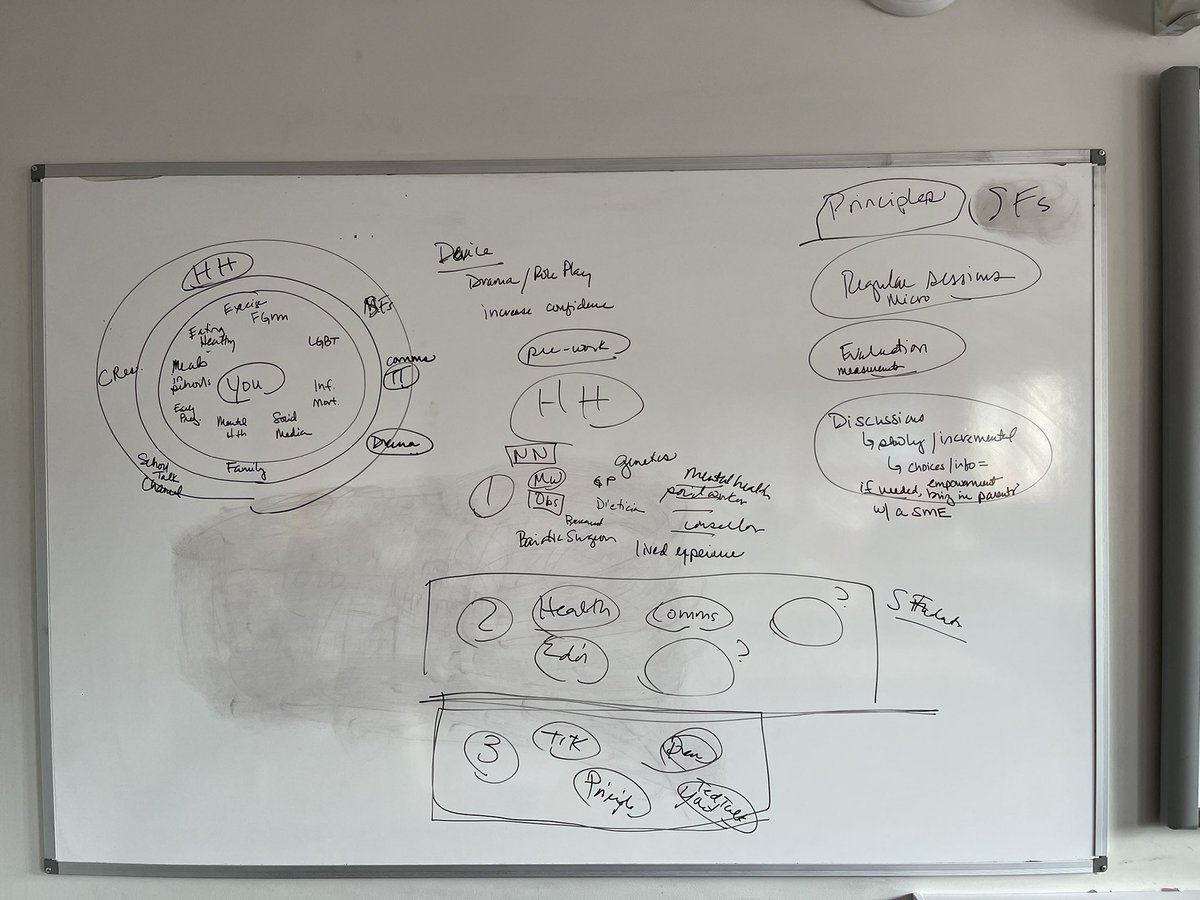 HH
Exercise
FGm
Eating
Healthy
LGBT
Meals
in
Schools
YOU
Inf.
Mort.
Early
Preg
Mental
Hth
Social
Media
Family
SFs
Comms
IT
Drama
School
Talk
Channel
Device
Drama/Role Play
increase confidence
pre-work
HH
NN
1
MW
Obs
genetics
GP
Dietician
Bariatric Surgeon
Mental health
social worker
Counsellor
lived experience
2
Health
Comms
?
Edn
?
3
TTK
Principle
Ted Talk
Principles
SFs
Regular sessions
Micro
Evaluation
measurement
Discussions
↳ slowly/incremental
↳ choices/info =
empowerment
if needed, bring in parents
w/ a SME